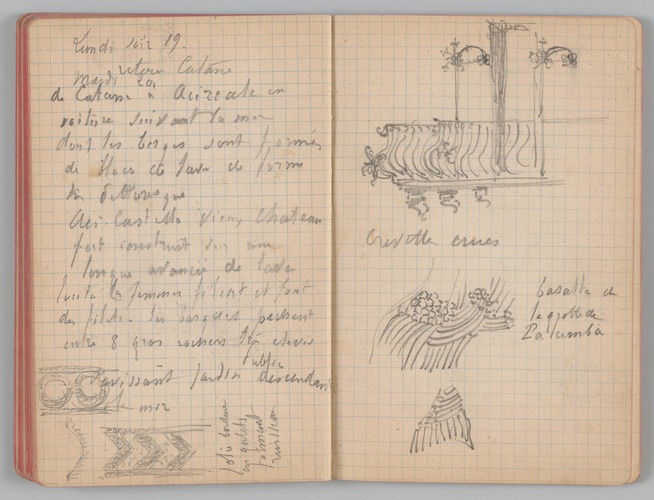 Lundi soir 19.
retour Catane
Mardi 20.
de Catane à Acireale en
voiture suivant la mer
dont les berges sont formés
de blocs de lave de forme
très pittoresque
Aci-Castello Vieux Chateau
fort construit sur une
longue avancée de lave
toutes les femmes filent et font
des filets. les barques passent
entre 8 gros rochers très élevés
public
ravissant jardin descendant
la mer
jolie bordure
en galets
formant
ruisseau
Crevette crues
basalte et
la grotte de
Palumba